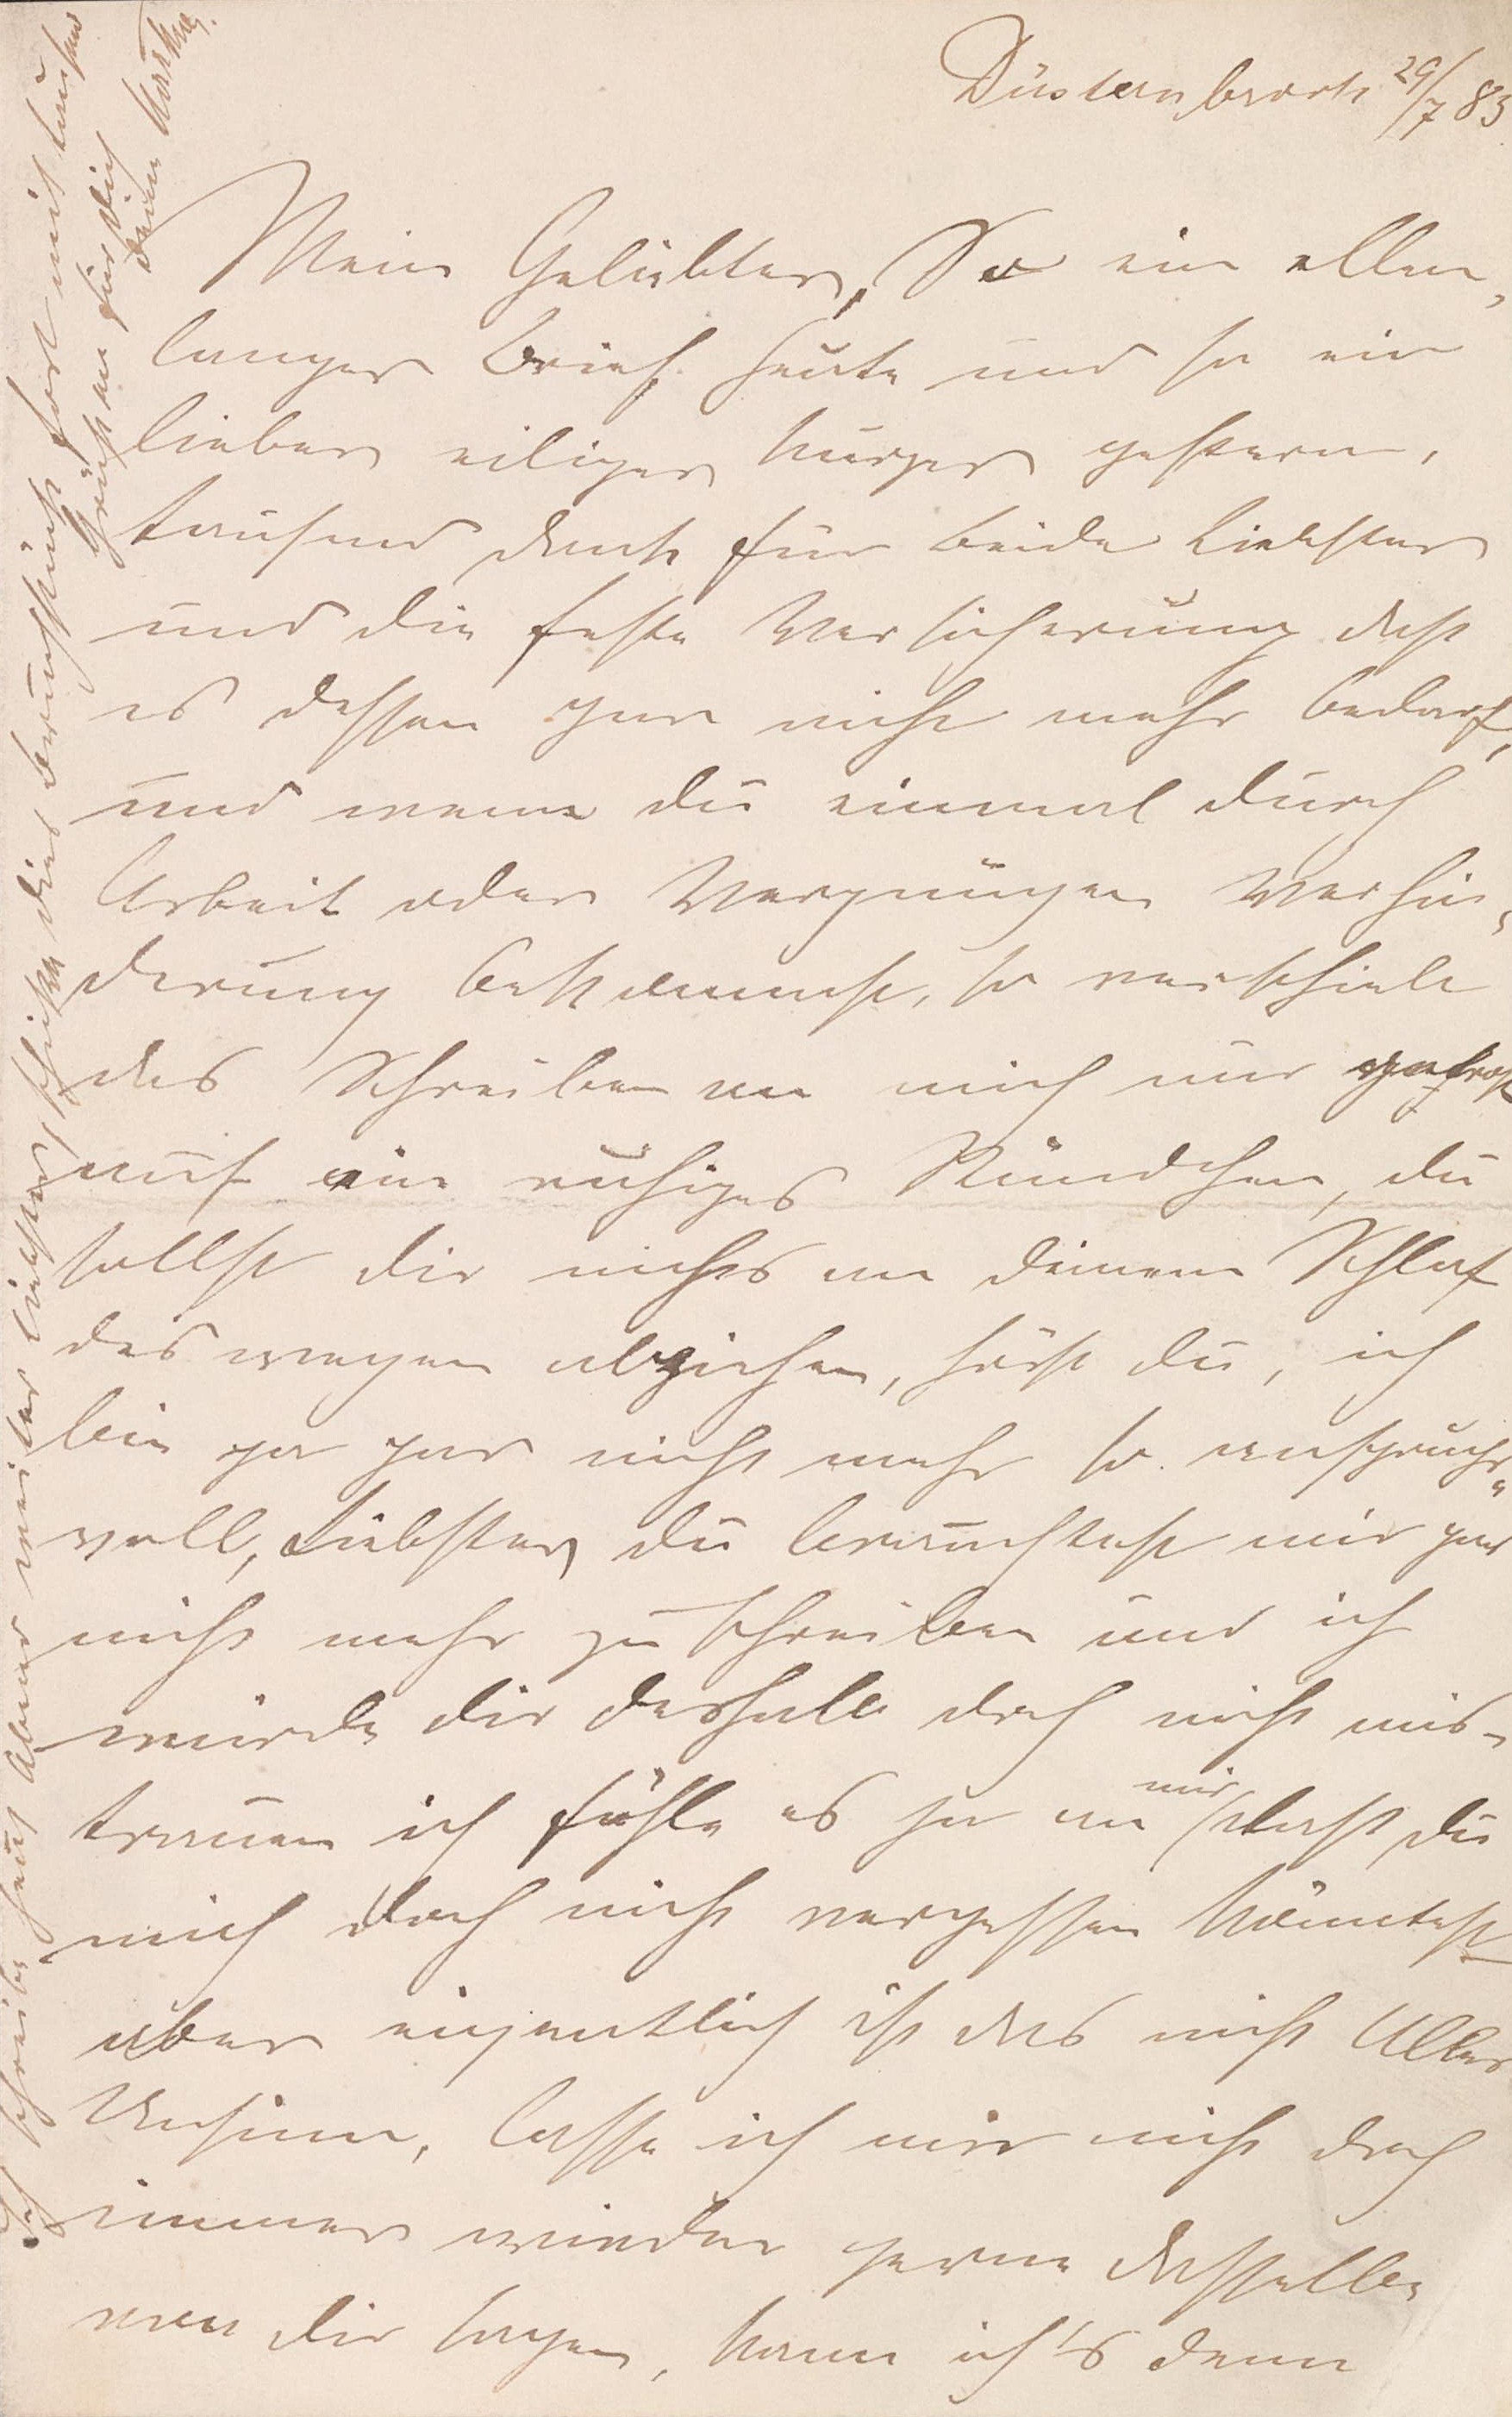 Düsternbrook 29/7 83
Mein Geliebter, So ein ellen„
langer Brief heute und so ein
lieber eiliger kurzer gestern,
tausend Dank für beide Liebster
und die feste Versicherung daß
es dessen gar nicht mehr bedarf,
und wenn du einmal durch
Arbeit oder Vergnügen Verhin„
derung bekommst, so verschiebe
das Schreiben an mich nur getrost
auf ein ruhiges Stündchen, du
sollst dir nichts an deinem Schlaf
deswegen abziehen, hörst du, ich
bin ja gar nicht mehr so anspruchs„
voll, Liebster, du brauchtest mir gar
nicht mehr zu schreiben und ich
würde dir deshalb doch nicht mis-
trauen ich fühle es ja an mir daß du
mich doch nicht vergessen könntest
aber eigentlich ist das nicht Alles
Unsinn, lasse ich mir nicht doch
immer wieder gerne dasselbe
von dir sagen, kann ich's denn
Ich schreibe heut Abend weiter Liebster, schicke dies Bruchstück fort mit tausend
Grüßen für dich
deine